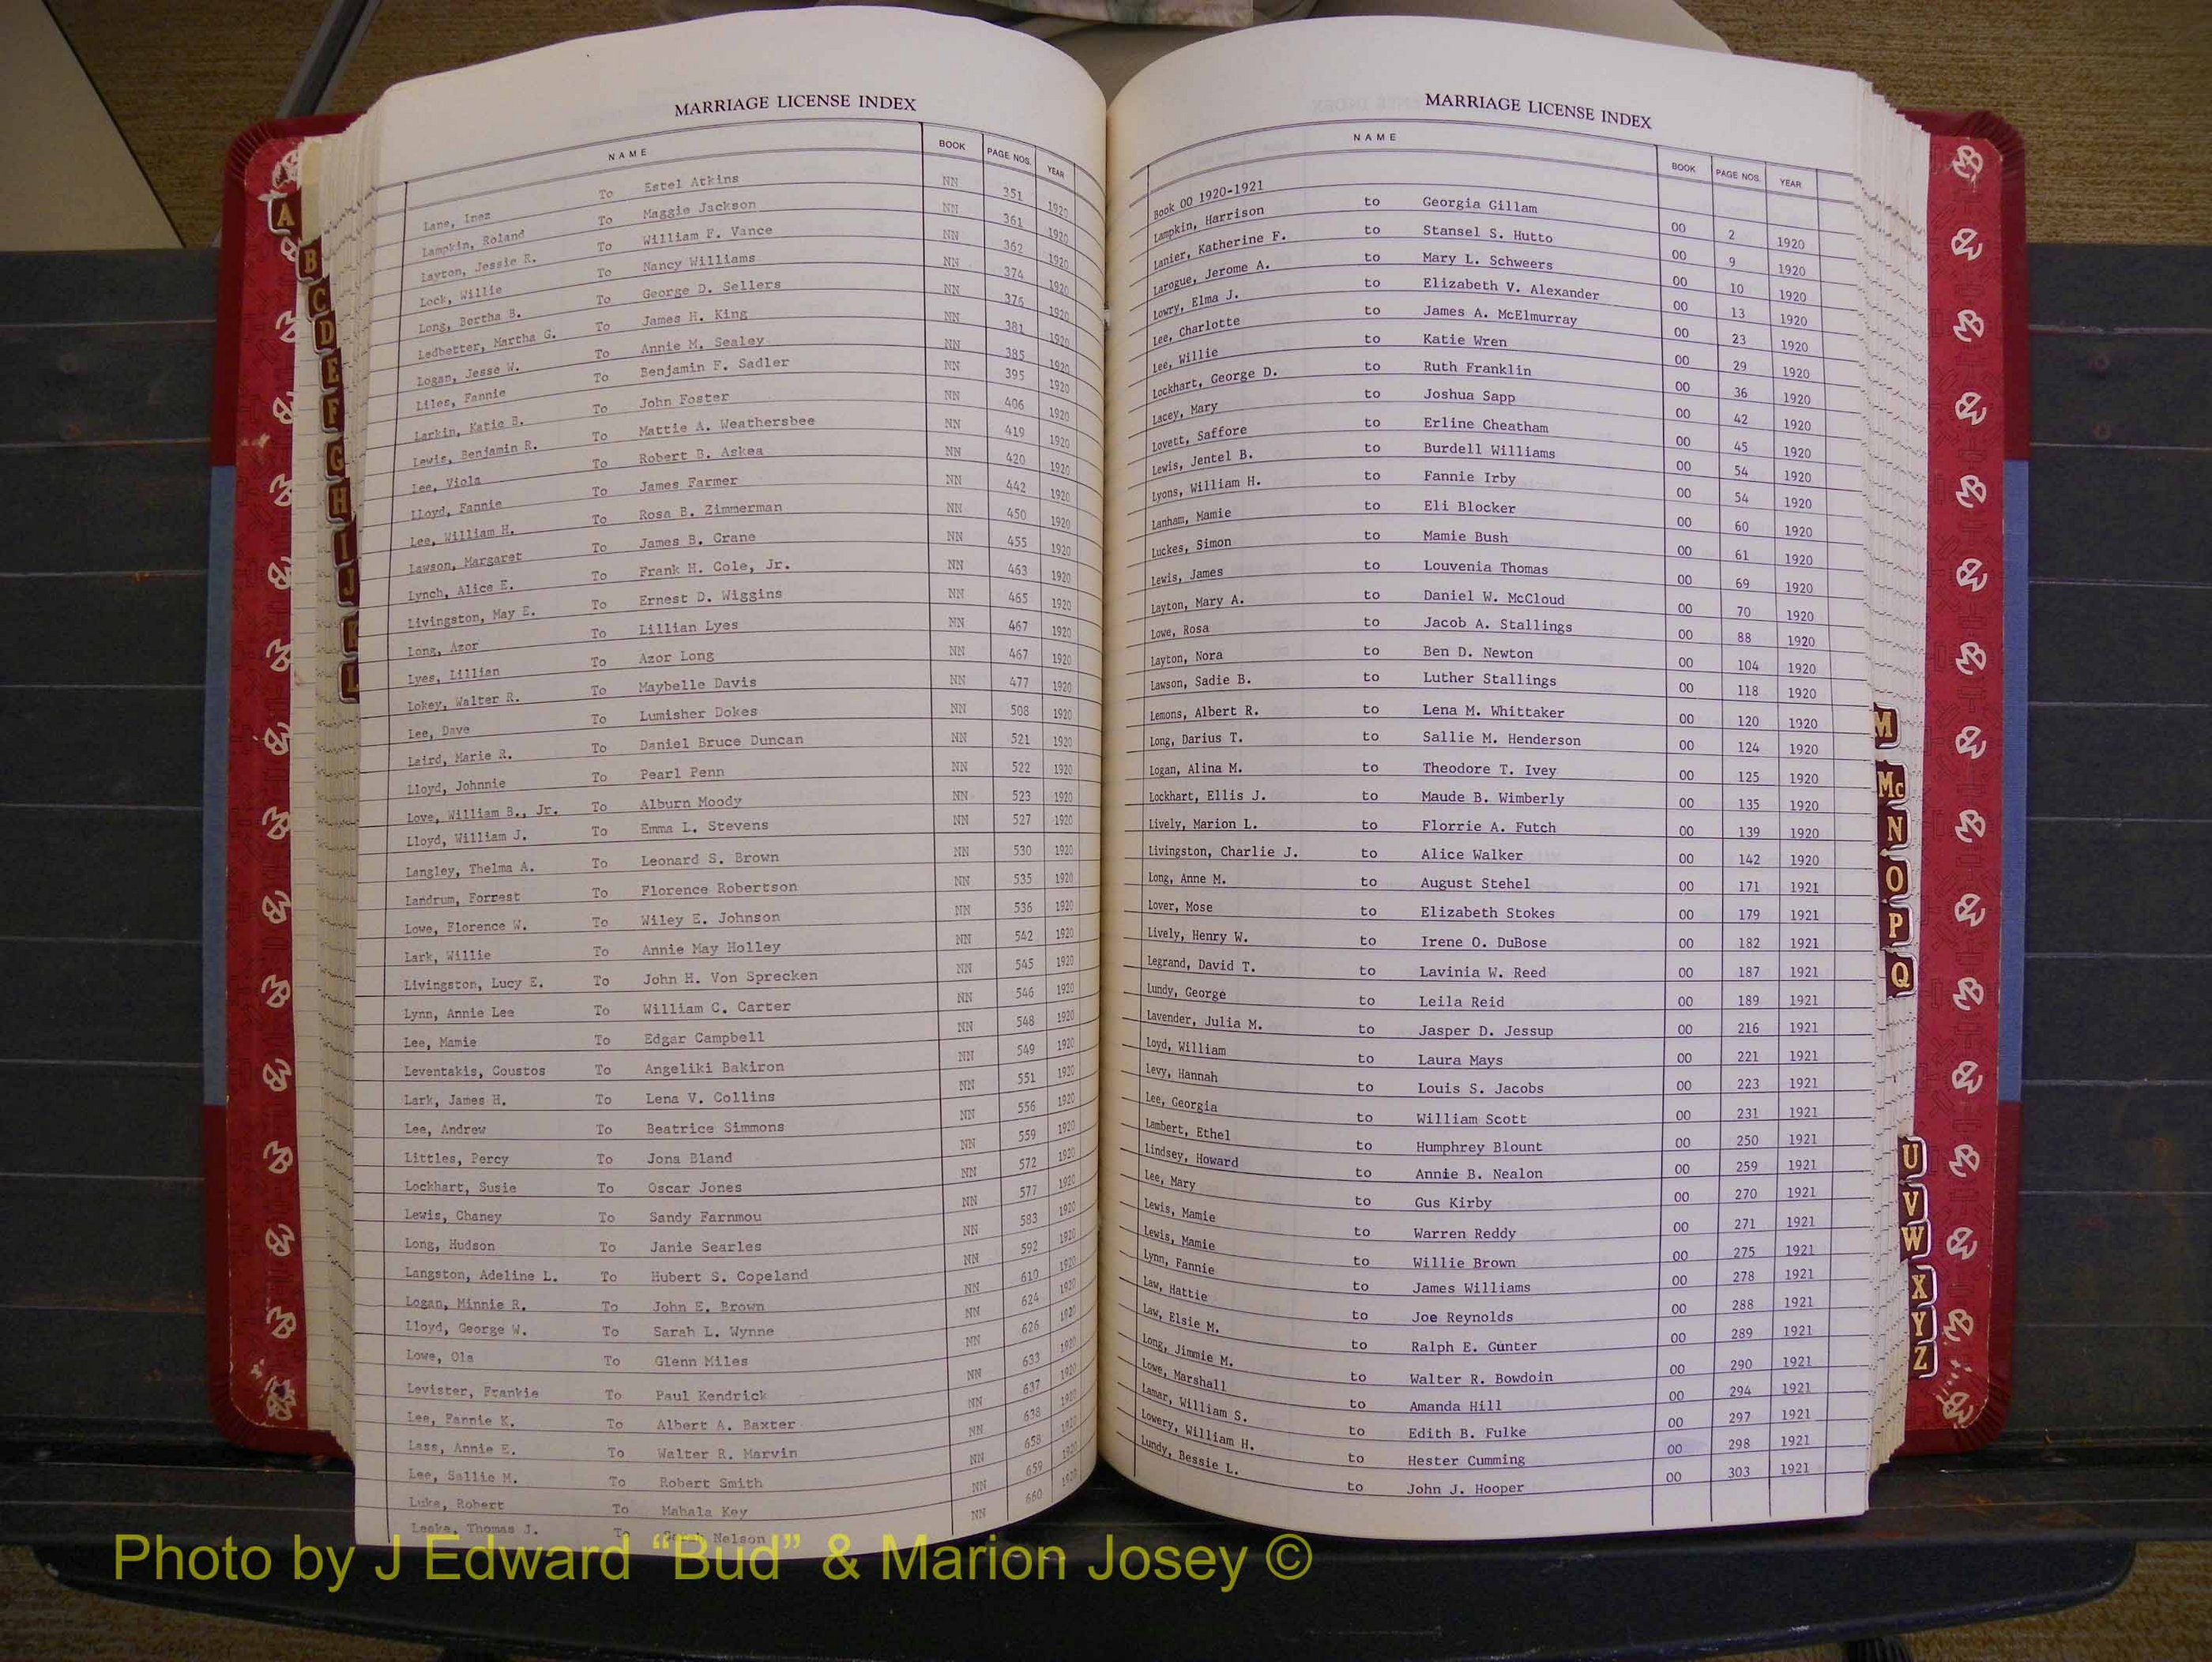 MARRIAGE LICENSE INDEX
NAME BOOK PAGE NOS. YEAR
Lane, Inez To Estel Atkins NN 351 1920
Lampkin, Roland To Maggie Jackson NN 361 1920
Layton, Jessie R. To William F. Vance NN 362 1920
Lock, Willie To Nancy Williams NN 374 1920
Long, Bertha B. To George D. Sellers NN 376 1920
Ledbetter, Martha G. To James H. King NN 381 1920
Logan, Jesse W. To Annie M. Sealey NN 385 1920
Liles, Fannie To Benjamin F. Sadler NN 395 1920
Larkin, Katie B. To John Foster NN 406 1920
Lewis, Benjamin R. To Mattie A. Weathersbee NN 419 1920
Lee, Viola To Robert B. Askea NN 420 1920
Lloyd, Fannie To James Farmer NN 442 1920
Lee, William H. To Rosa B. Zimmerman NN 450 1920
Lawson, Margaret To James B. Crane NN 455 1920
Lynch, Alice E. To Frank H. Cole, Jr. NN 463 1920
Livingston, May E. To Ernest D. Wiggins NN 465 1920
Long, Azor To Lillian Lyes NN 467 1920
Lyes, Lillian To Azor Long NN 467 1920
Lokey, Walter R. To Maybelle Davis NN 477 1920
Lee, Dave To Lumisher Dokes NN 508 1920
Laird, Marie R. To Daniel Bruce Duncan NN 521 1920
Lloyd, Johnnie To Pearl Penn NN 522 1920
Love, William B., Jr. To Alburn Moody NN 523 1920
Lloyd, William J. To Emma L. Stevens NN 527 1920
Langley, Thelma A. To Leonard S. Brown NN 530 1920
Landrum, Forrest To Florence Robertson NN 535 1920
Lowe, Florence W. To Wiley E. Johnson NN 536 1920
Lark, Willie To Annie May Holley NN 542 1920
Livingston, Lucy E. To John H. Von Sprecken NN 545 1920
Lynn, Annie Lee To William C. Carter NN 546 1920
Lee, Mamie To Edgar Campbell NN 548 1920
Leventakis, Coustos To Angeliki Bakiron NN 549 1920
Lark, James H. To Lena V. Collins NN 551 1920
Lee, Andrew To Beatrice Simmons NN 556 1920
Littles, Percy To Jona Bland NN 559 1920
Lockhart, Susie To Oscar Jones NN 572 1920
Lewis, Chaney To Sandy Farnmou NN 577 1920
Long, Hudson To Janie Searles NN 583 1920
Langston, Adeline L. To Hubert S. Copeland NN 592 1920
Logan, Minnie R. To John E. Brown NN 610 1920
Lloyd, George W. To Sarah L. Wynne NN 624 1920
Lowe, Ola To Glenn Miles NN 626 1920
Levister, Frankie To Paul Kendrick NN 633 1920
Lee, Fannie K. To Albert A. Baxter NN 637 1920
Lass, Annie E. To Walter R. Marvin NN 638 1920
Lee, Sallie M. To Robert Smith NN 658 1920
Luke, Robert To Mahala Key NN 659 1920
Leake, Thomas J. To Nelson NN 660 1920
MARRIAGE LICENSE INDEX
NAME BOOK PAGE NOS. YEAR
Book 00 1920-1921
Lampkin, Harrison to Georgia Gillam 00 2 1920
Lanier, Katherine F. to Stansel S. Hutto 00 9 1920
Larogue, Jerome A. to Mary L. Schweers 00 10 1920
Lowry, Elma J. to Elizabeth V. Alexander 00 13 1920
Lee, Charlotte to James A. McElmurray 00 23 1920
Lee, Willie to Katie Wren 00 29 1920
Lockhart, George D. to Ruth Franklin 00 36 1920
Lacey, Mary to Joshua Sapp 00 42 1920
Lovett, Saffore to Erline Cheatham 00 45 1920
Lewis, Jentel B. to Burdell Williams 00 54 1920
Lyons, William H. to Fannie Irby 00 54 1920
Lanham, Mamie to Eli Blocker 00 60 1920
Luckes, Simon to Mamie Bush 00 61 1920
Lewis, James to Louvenia Thomas 00 69 1920
Layton, Mary A. to Daniel W. McCloud 00 70 1920
Lowe, Rosa to Jacob A. Stallings 00 88 1920
Layton, Nora to Ben D. Newton 00 104 1920
Lawson, Sadie B. to Luther Stallings 00 118 1920
Lemons, Albert R. to Lena M. Whittaker 00 120 1920
Long, Darius T. to Sallie M. Henderson 00 124 1920
Logan, Alina M. to Theodore T. Ivey 00 125 1920
Lockhart, Ellis J. to Maude B. Wimberly 00 135 1920
Lively, Marion L. to Florrie A. Futch 00 139 1920
Livingston, Charlie J. to Alice Walker 00 142 1920
Long, Anne M. to August Stehel 00 171 1921
Lover, Mose to Elizabeth Stokes 00 179 1921
Lively, Henry W. to Irene O. DuBose 00 182 1921
Legrand, David T. to Lavinia W. Reed 00 187 1921
Lundy, George to Leila Reid 00 189 1921
Lavender, Julia M. to Jasper D. Jessup 00 216 1921
Loyd, William to Laura Mays 00 221 1921
Levy, Hannah to Louis S. Jacobs 00 223 1921
Lee, Georgia to William Scott 00 231 1921
Lambert, Ethel to Humphrey Blount 00 250 1921
Lindsey, Howard to Annie B. Nealon 00 259 1921
Lee, Mary to Gus Kirby 00 270 1921
Lewis, Mamie to Warren Reddy 00 271 1921
Lewis, Mamie to Willie Brown 00 275 1921
Lynn, Fannie to James Williams 00 278 1921
Law, Hattie to Joe Reynolds 00 288 1921
Law, Elsie M. to Ralph E. Gunter 00 289 1921
Long, Jimmie M. to Walter R. Bowdoin 00 290 1921
Lowe, Marshall to Amanda Hill 00 294 1921
Lamar, William S. to Edith B. Fulke 00 297 1921
Lowery, William H. to Hester Cumming 00 298 1921
Lundy, Bessie L. to John J. Hooper 00 303 1921
A
B
C
D
E
F
G
H
I
J
K
L
M
Mc
N
O
P
Q
U
V
W
X
Y
Z
Photo by J Edward “Bud” & Marion Josey ©